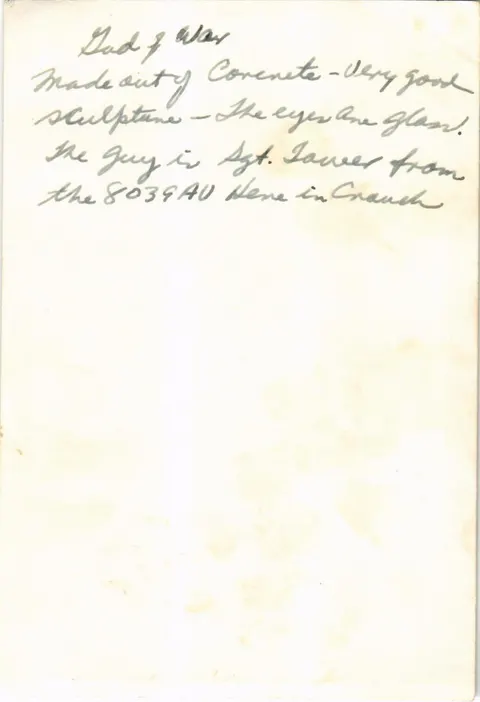 God of War
Made out of Concrete - Very good
sculpture - The eyes are glass.
The guy is Sgt. Tower from
the 8039 AU Here in